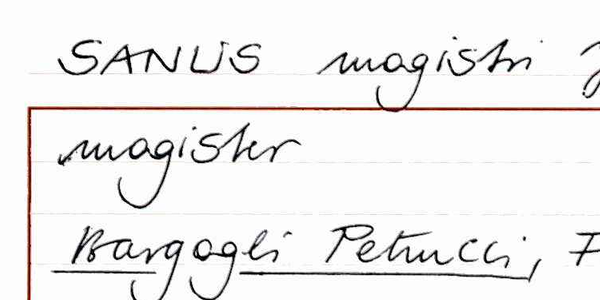 SANUS magistri
magister
Bargagli Petrucci,